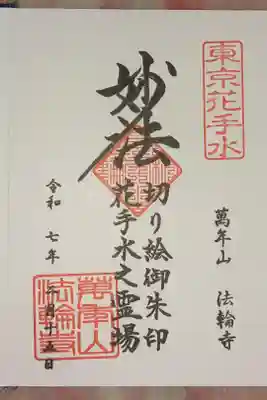 東京花手水
萬年山 法輪寺
妙法
切り絵御朱印
花手水之霊場
令和 七年
月十五日
萬年山
法輪寺